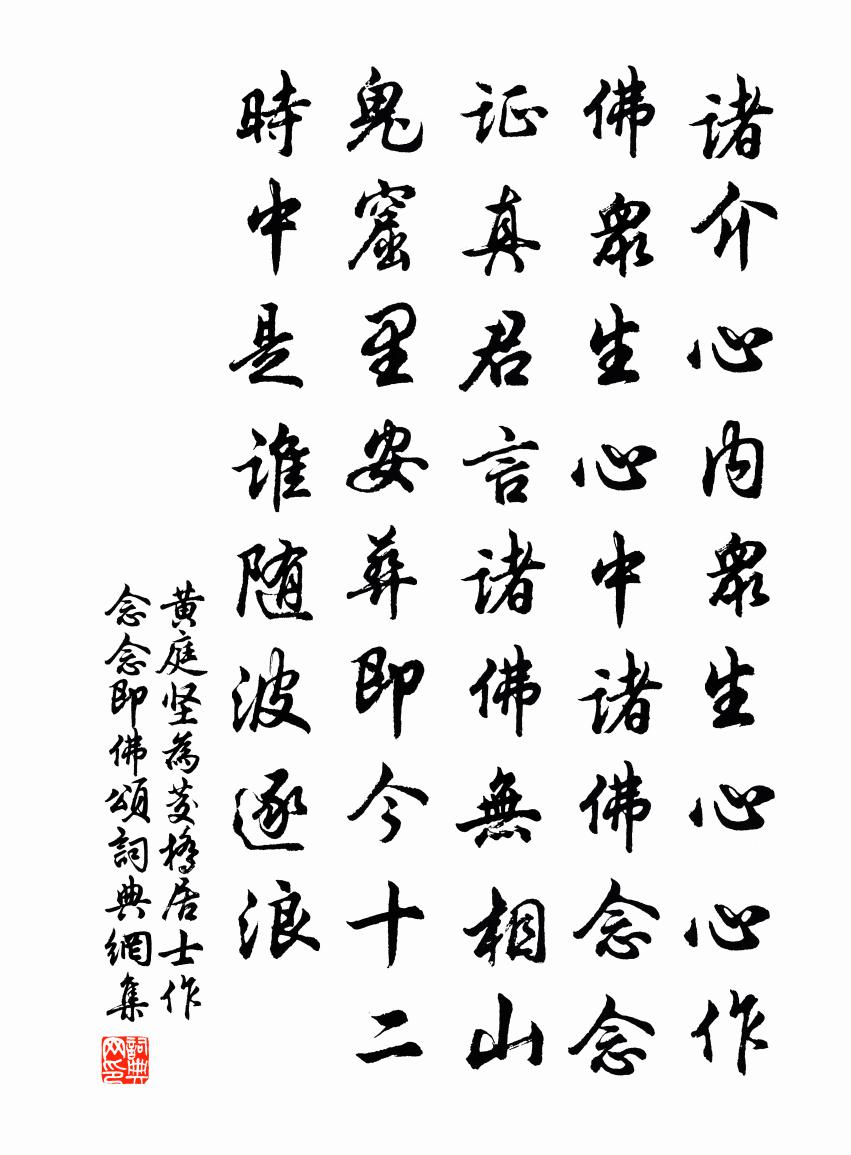 诸介心内眾生心心作
佛眾生心中诸佛念念
证真君言诸佛無相山
鬼窟里安葬即今十二
時中是谁随波逐浪
黄庭坚為茭橋居士作
念念即佛頌詞典網集
詞典网印